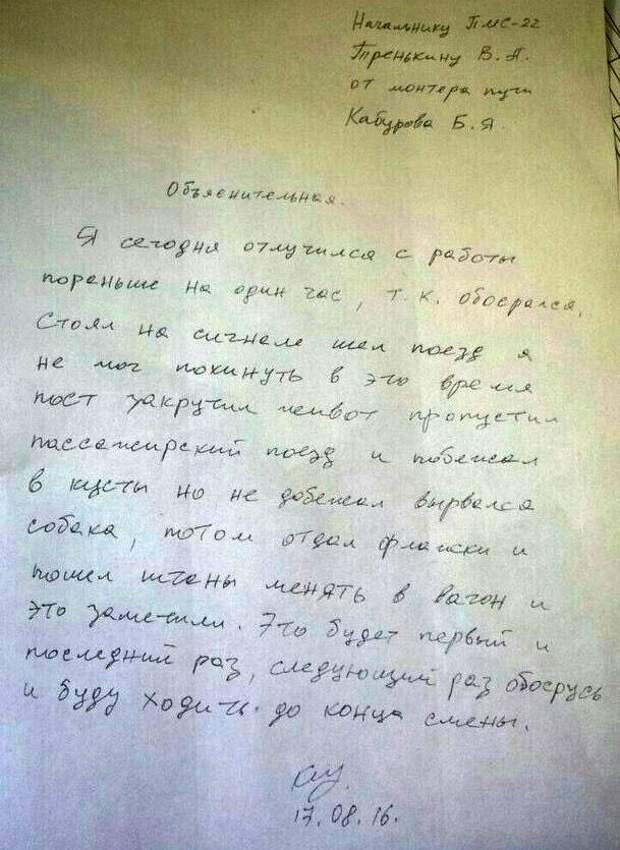 Начальнику ПМС-22
Тренькину В.П.
от монтера пути
Кабурова Б.Я.
Объяснительная.
Я сегодня отлучился с работы
пораньше на один час, т.к. обосрался.
Стоял на сигнале шел поезд я
не мог покинуть в это время
пост закрутил живот пропустил
пассажирский поезд и побежал
в кусты но не добежал вырвалса
собака, потом отдал флажки и
пошел штаны менять в вагон и
это заметили. Это будет первый и
последний раз, следующий раз обосрусь
и буду ходить до конца смены.
17.08.16.